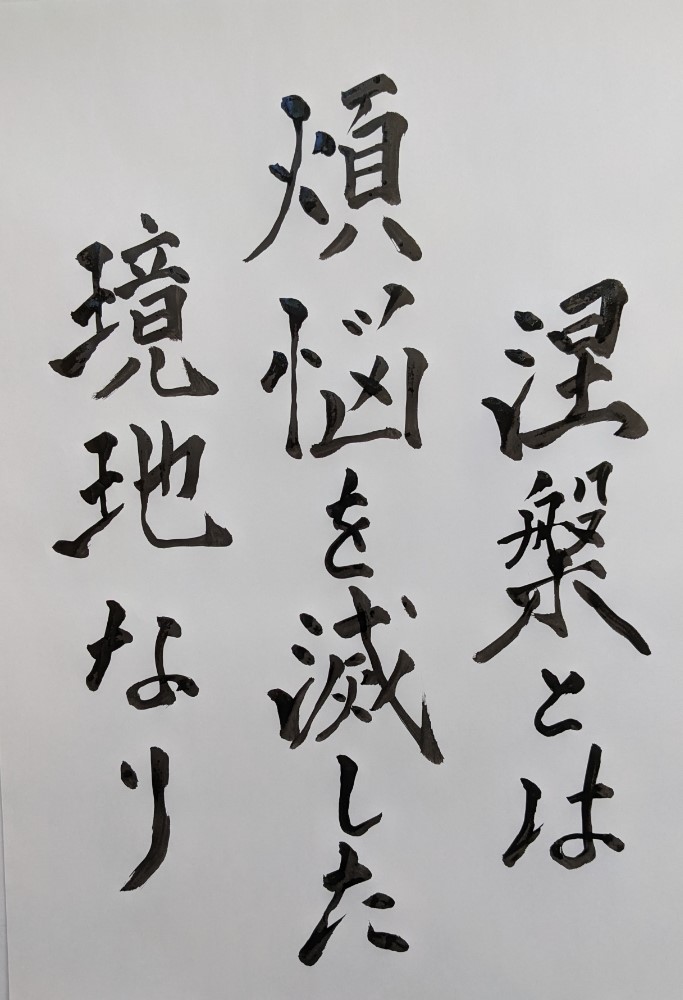 涅槃とは
煩悩を滅した
境地なり